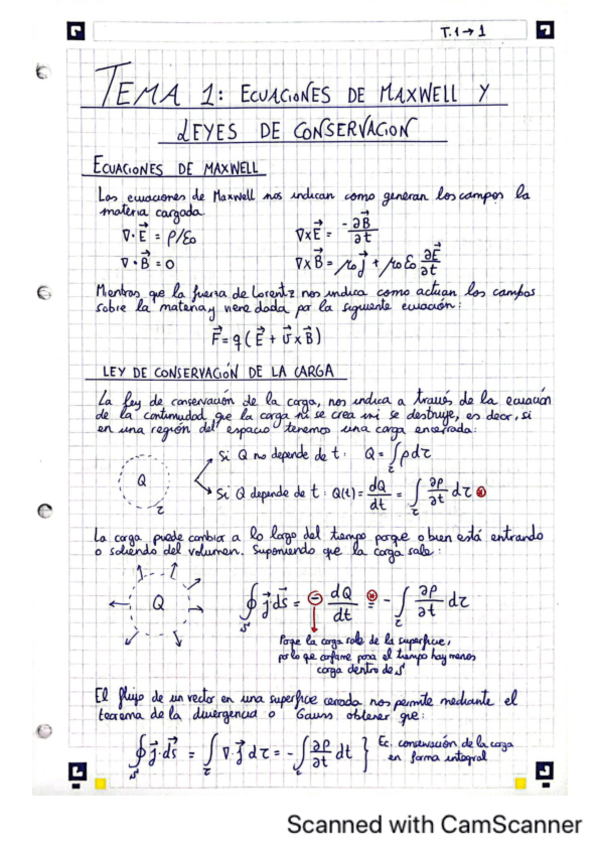 T.1→1
TEMA 1: ECUACIONES DE MAXWELL Y
LEYES DE CONSERVACION
ECUACIONES DE MAXWELL
Las ecuaciones de Maxwell nos indican como generan los campos la
materia cargada
∇·E⃗ = ρ/ε₀    ∇×E⃗ = -∂B⃗/∂t
∇·B⃗ = 0    ∇×B⃗ = μ₀j⃗ + μ₀ε₀ ∂E⃗/∂t
Mientras que la fuerza de Lorentz nos indica como actuan los campos
sobre la materia y viene dada por la siguiente ecuación:
F⃗ = q(E⃗ + v⃗×B⃗)
LEY DE CONSERVACIÓN DE LA CARGA
La ley de conservación de la carga, nos indica a través de la ecuación
de la continuidad que la carga ni se crea ni se destruye, es decir, si
en una región del espacio tenemos una carga encerrada:
Si Q no depende de t: Q = ∫τ ρdτ
Q
τ
Si Q depende de t: Q(t) = dQ/dt = ∫τ ∂ρ/∂t dτ ⊛
La carga puede cambiar a lo largo del tiempo porque o bien está entrando
o saliendo del volumen. Suponiendo que la carga sale:
Q
∮s j⃗·ds⃗ = ⊖ dQ/dt ⊛= -∫τ ∂ρ/∂t dτ
Porque la carga sale de la superficie,
por lo que conforme pasa el tiempo hay menos
carga dentro de S
El flujo de un vector en una superficie cerrada nos permite mediante el
teorema de la divergencia o Gauss obtener que:
∮s j⃗·ds⃗ = ∫τ ∇·j⃗ dτ = -∫τ ∂ρ/∂t dt } Ec. conservación de la carga
en forma integral
Scanned with CamScanner